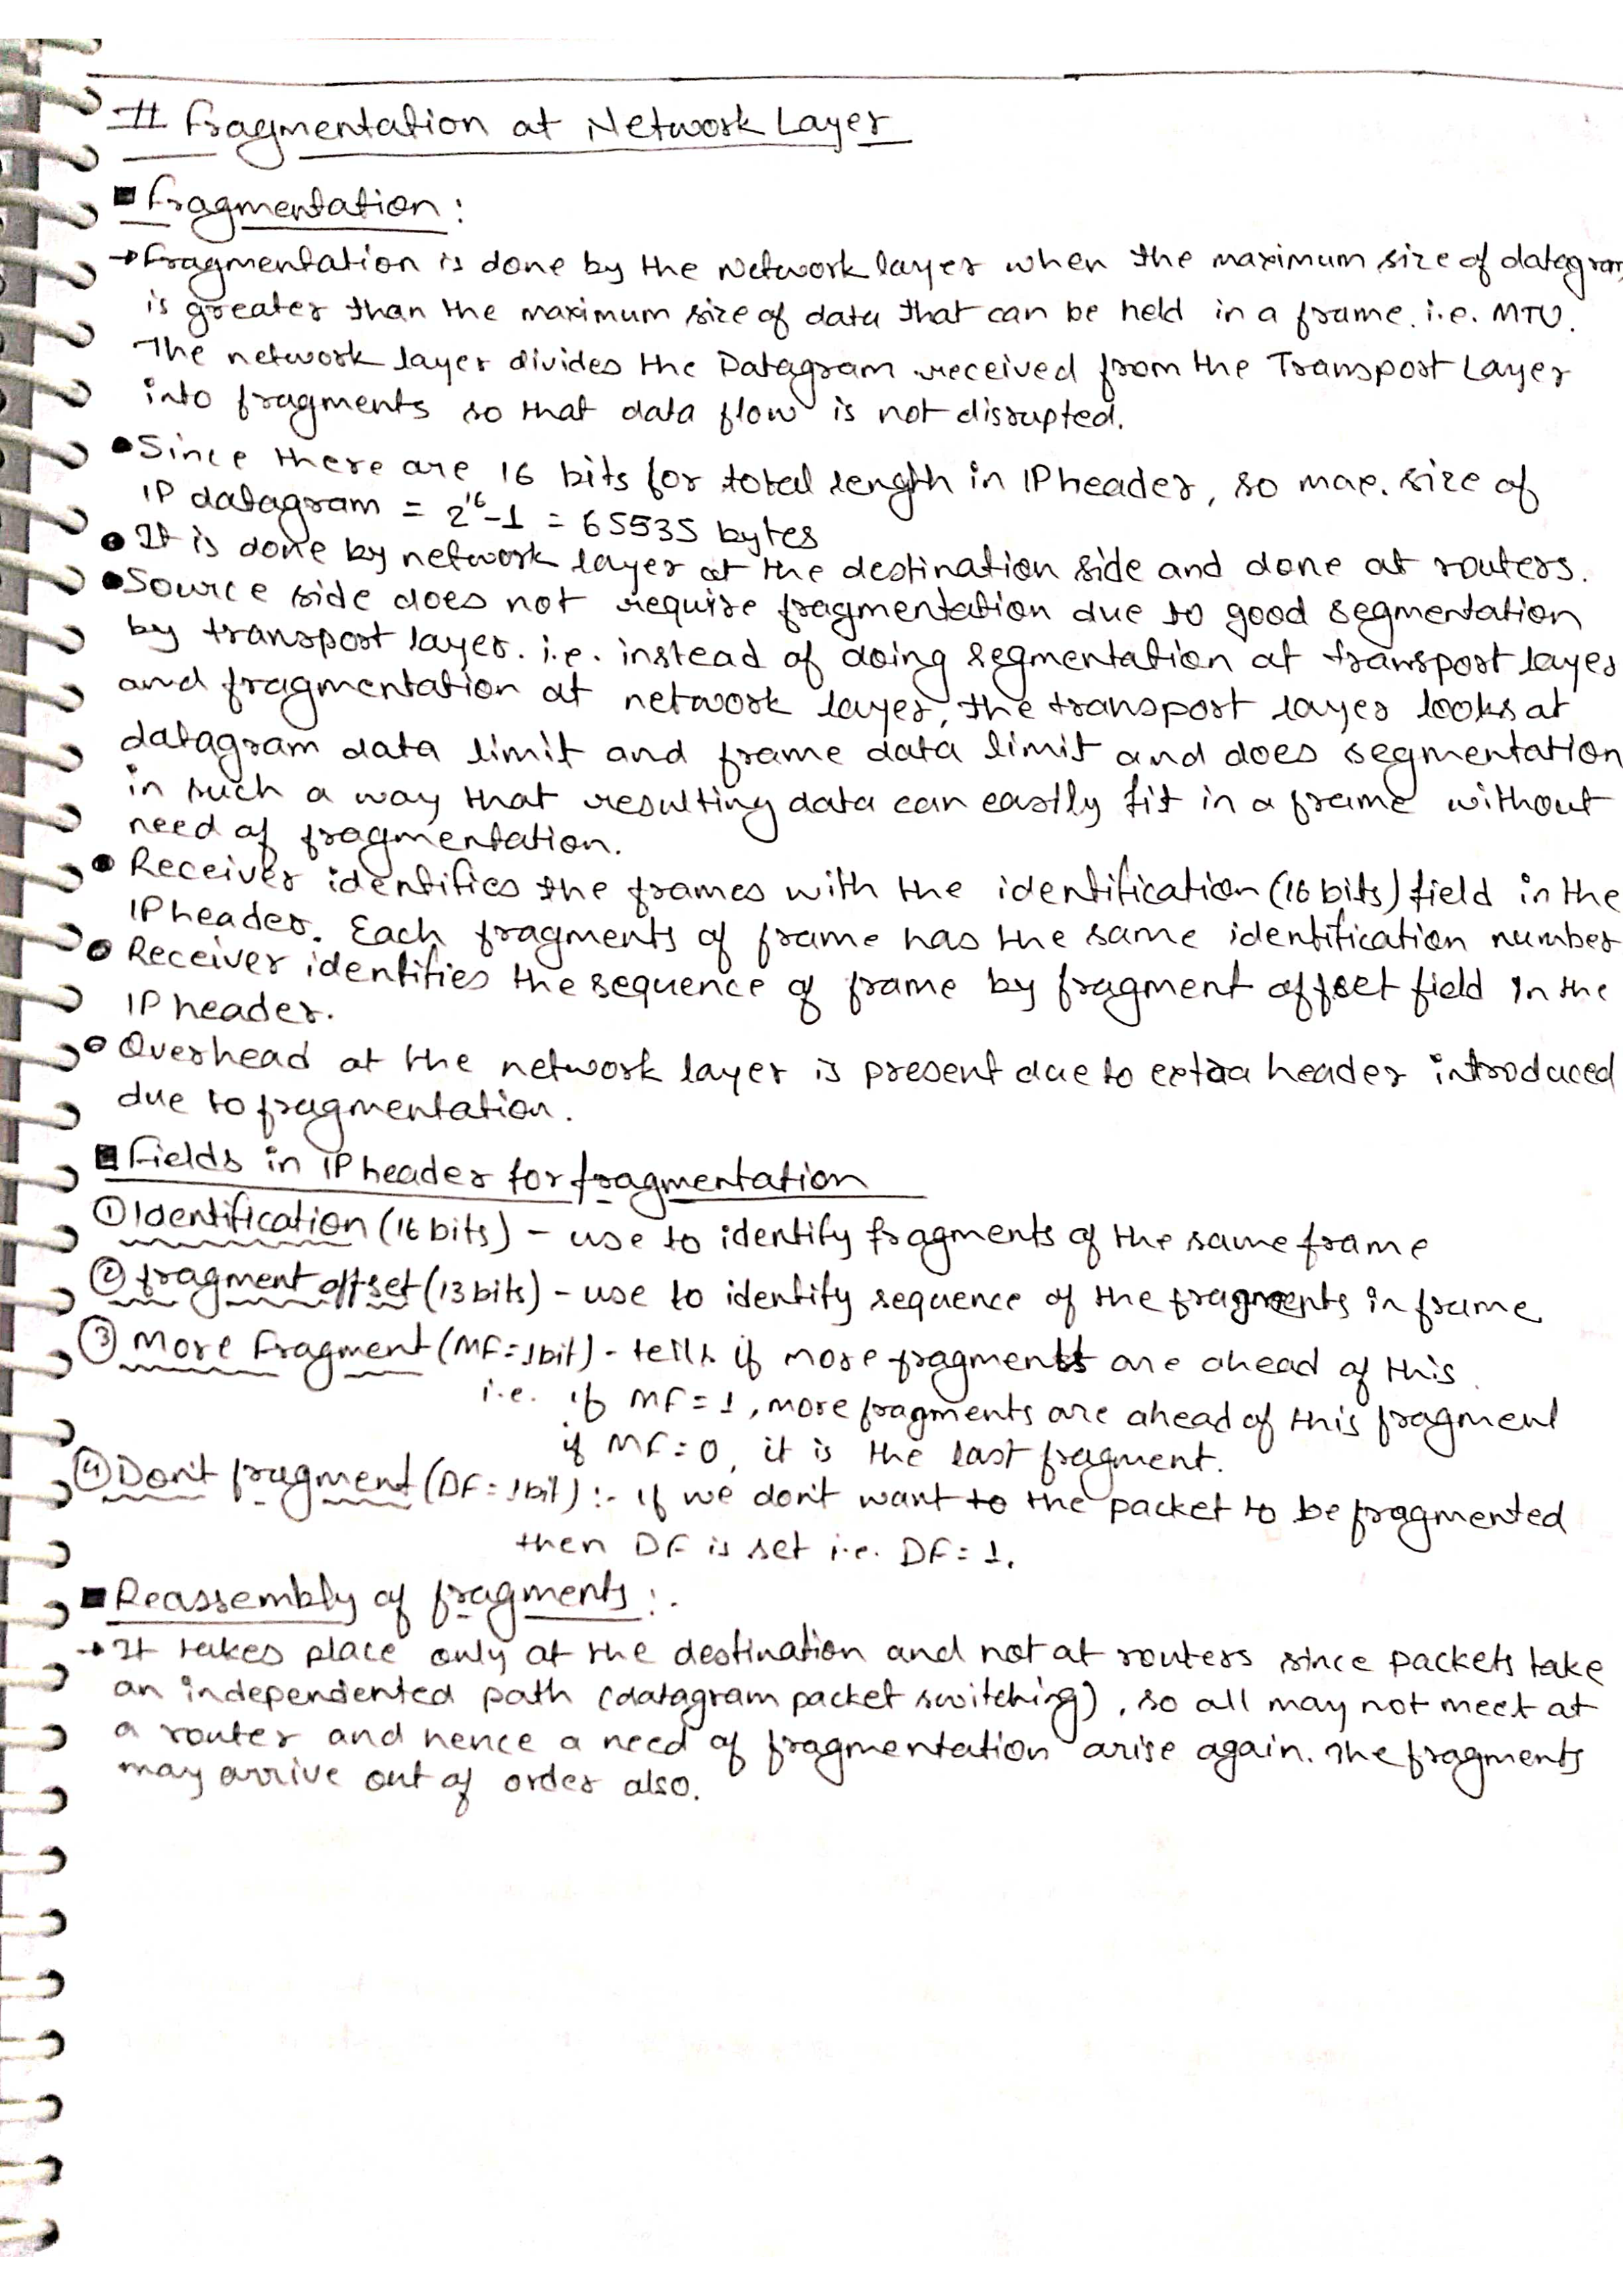 # Fragmentation at Network Layer
■ Fragmentation :
→ Fragmentation is done by the Network layer when the maximum size of datagram
is greater than the maximum size of data that can be held in a frame. i.e. MTU.
The network layer divides the Datagram received from the Transport Layer
into fragments so that data flow is not disrupted.
● Since there are 16 bits for total length in IP header, so max. size of
IP datagram = 2¹⁶-1 = 65535 bytes
● It is done by network layer at the destination side and done at routers.
● Source side does not require fragmentation due to good segmentation
by transport layer. i.e. instead of doing segmentation at transport layer
and fragmentation at network layer, the transport layer looks at
datagram data limit and frame data limit and does segmentation
in such a way that resulting data can easily fit in a frame without
need of fragmentation.
● Receiver identifies the frames with the identification (16 bits) field in the
IP header. Each fragments of frame has the same identification number
● Receiver identifies the sequence of frame by fragment offset field in the
IP header.
● Overhead at the network layer is present due to extra header introduced
due to fragmentation.
■ Fields in IP header for fragmentation
① Identification (16 bits) - use to identify fragments of the same frame
② fragment offset (13 bits) - use to identify sequence of the fragments in frame
③ More Fragment (MF = 1bit) - tells if more fragments are ahead of this
i.e. if MF = 1, more fragments are ahead of this fragment
if MF = 0, it is the last fragment.
④ Don't fragment (DF = 1bit) :- If we don't want to the packet to be fragmented
then DF is set i.e. DF = 1.
■ Reassembly of fragments :-
→ It takes place only at the destination and not at routers since packets take
an independented path (datagram packet switching), so all may not meet at
a router and hence a need of fragmentation arise again. The fragments
may arrive out of order also.